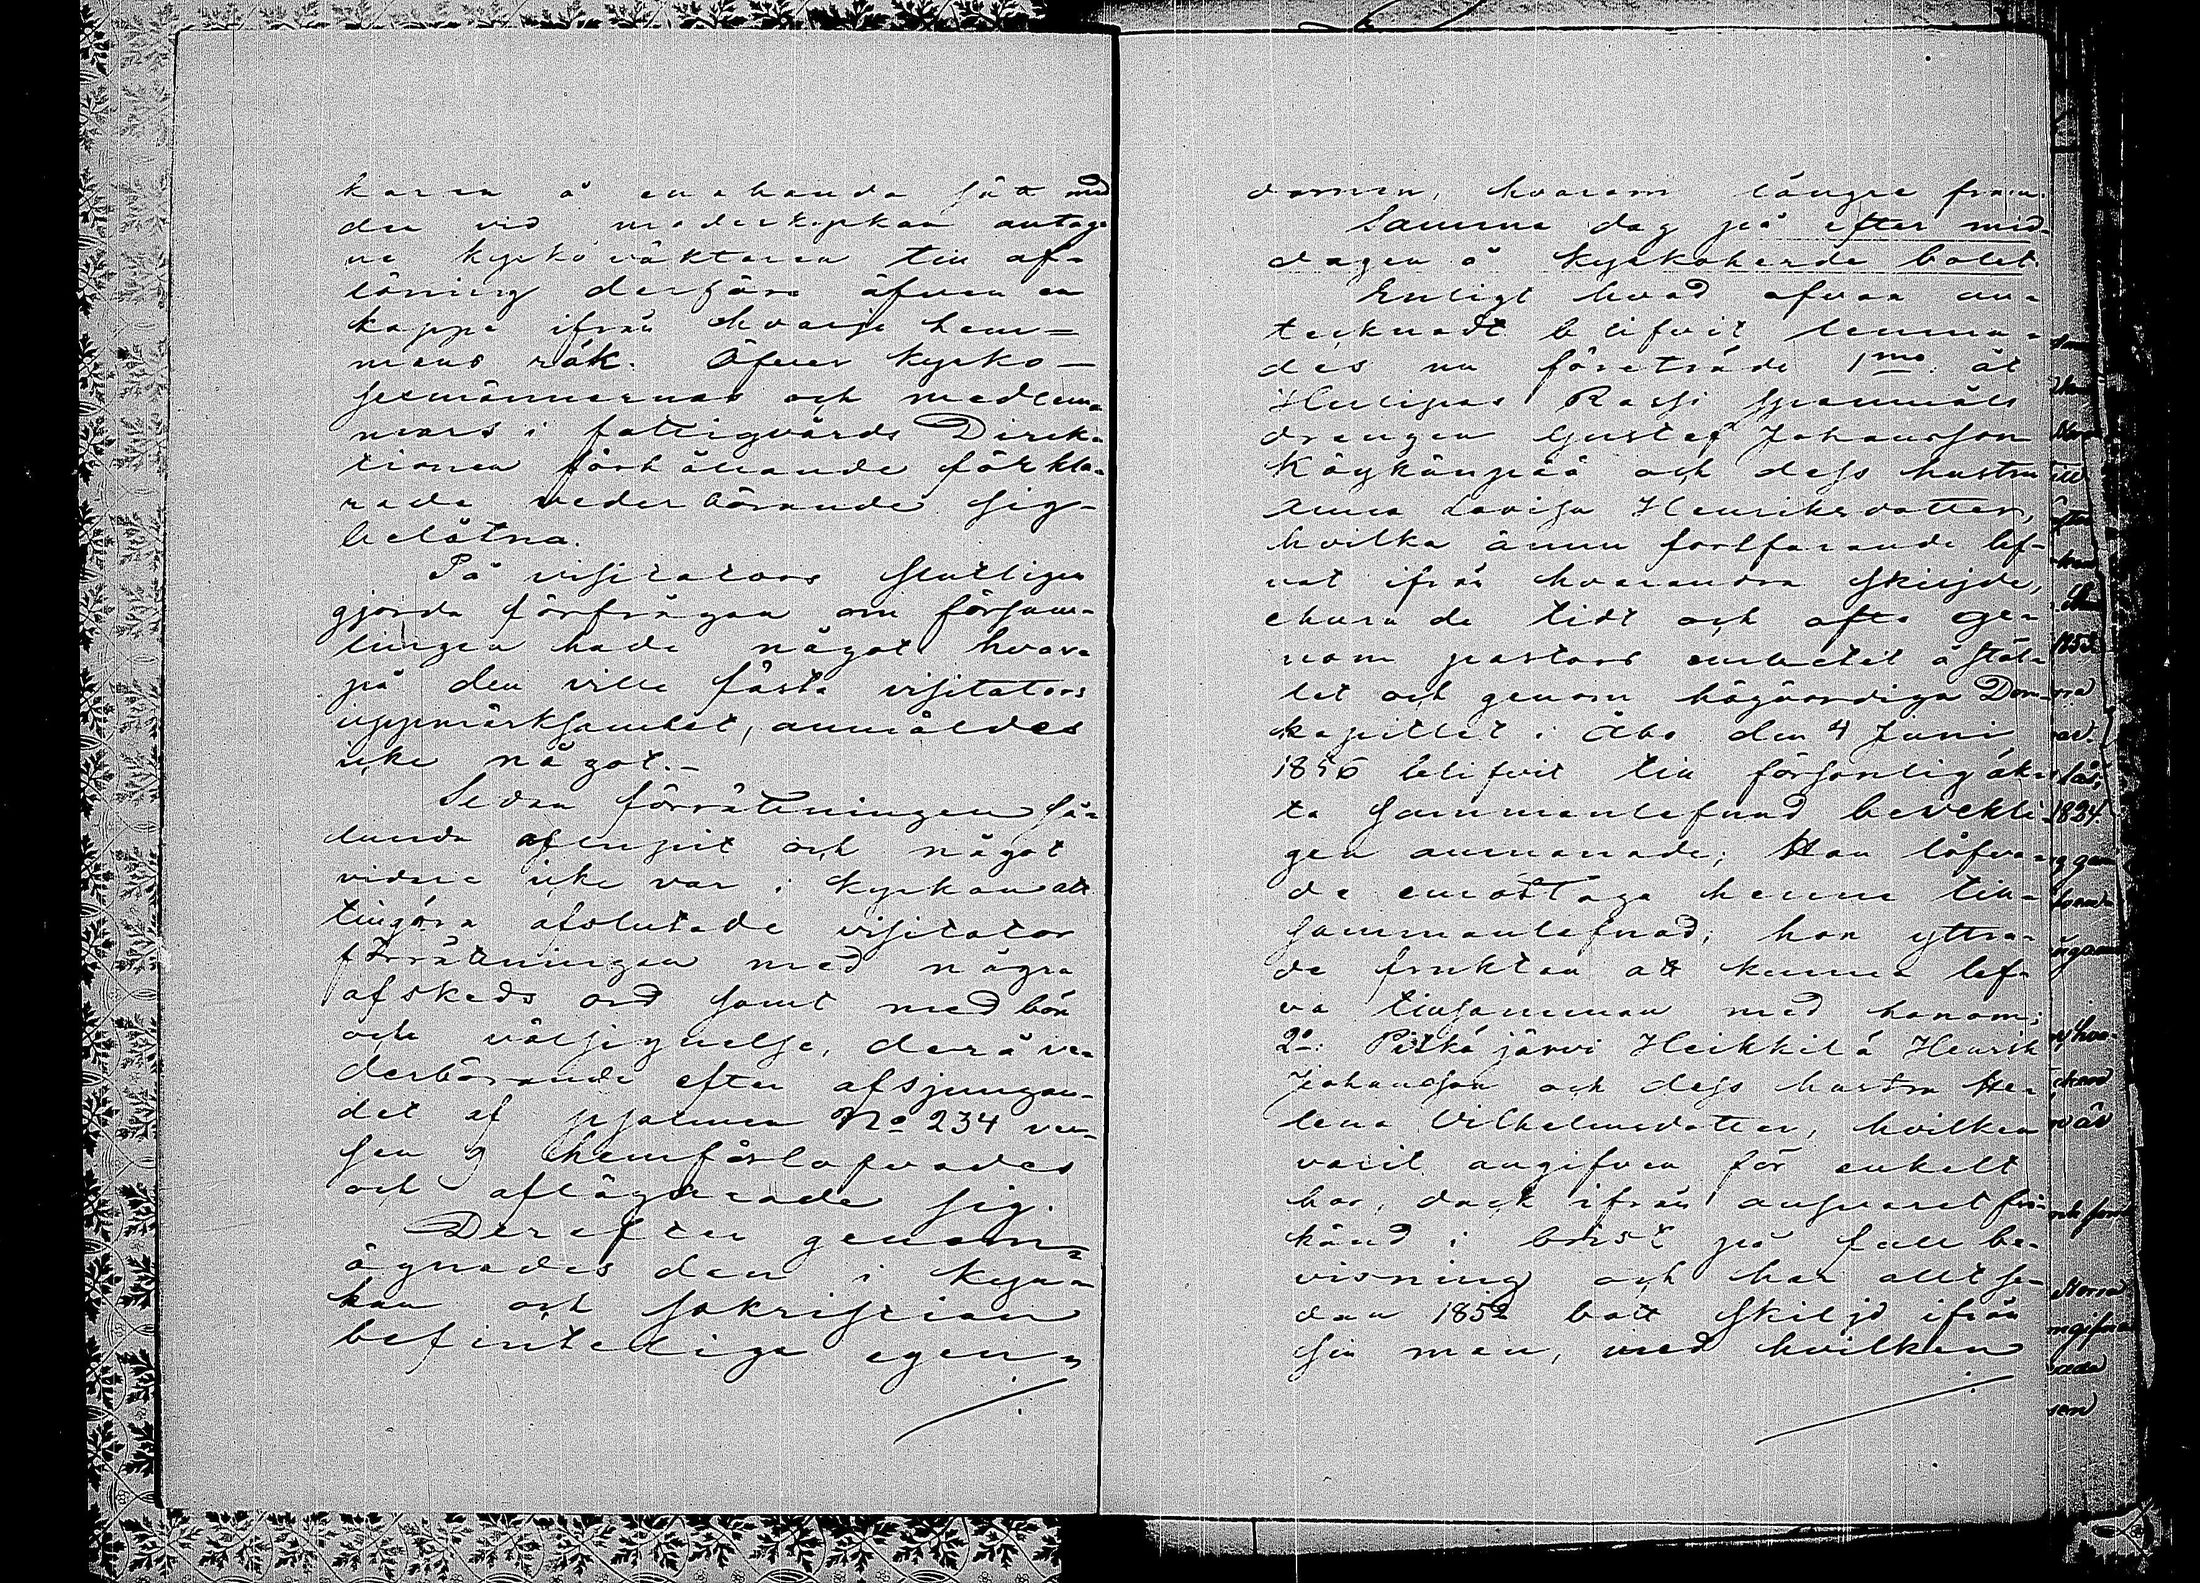 karen å enahanda sätt med
den vid moderkyrkan antag-
ne kyrkoväktaren till af-
löning derföre äfven en
kappe ifrån hvarje hem=
mans rök. Öfver kyrko-
sexmännernas och medlem-
mars i fattigvårds Direk-
tionen förhållande förkla-
rade vederbörande sig
belåtna.
På visitators slutligen
gjorda förfrågan om försam-
lingen hade något hvar-
på den ville fästa visitators
uppmärksamhet, anmäldes
icke något.-
Sedan förrättningen så-
lunda aflupit och något
vidare icke var i kyrkan att
tillgöra afslutade visitator
förrättningen med några
afskeds ord samt med bön
och välsignelse, derå ve-
derbörande efter afsjungan-
det af psalmen No 234 ver-
sen 9 hemförlofvades
och aflägsnade sig.
Derefter genom=
ögnades den i kyr-
kan och sakristian
befinteliga egen-
domen, hvarom längre fram.
Samma dag på efter mid-
dagen å kyrkoherde bolet.
Enligt hvad ofvan an-
tecknadt blifvit lemna-
des nu företräde 1mo åt
Rassi spannmåls
drengen Gustaf Johansson
Köykänpää och dess hustru
Anna Lovisa Henriksdotter,
hvilka ännu fortfarande lef-
vat ifrån hvarandra skiljde,
ehuru de tidt och ofta ge-
nom pastors embetet å stäl-
let och genom högvördiga Dom-
kapitlet i Åbo den 4 Juni
1856 blifvit till försonlig äk-
ta sammanlefnad bevekli-
gen anmanade; Han löfva-
de emottaga henne till
sammanlefnad; hon yttra-
de fruktan att kunna lef-
va tillsamman med honom;
2o: Pitkäjärvi Heikkilä Henrik
Johansson och dess hustru He-
lena Vilhelmsdotter, hvilken
varit angifven för enkelt
hor, dock ifrån ansvaret fri-
känd i brist på full be-
visning och har allt se-
dan 1852 bott skiljd ifrån
sin man, med hvilken